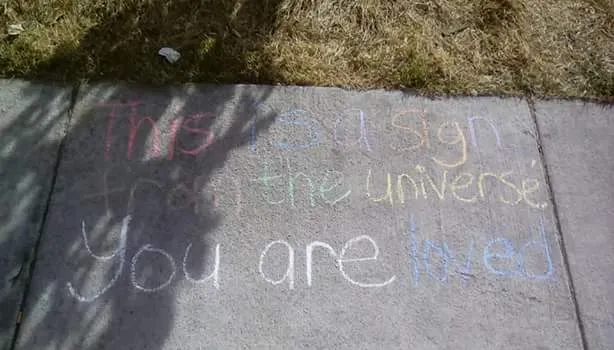 This is a sign
from the universe
You are loved